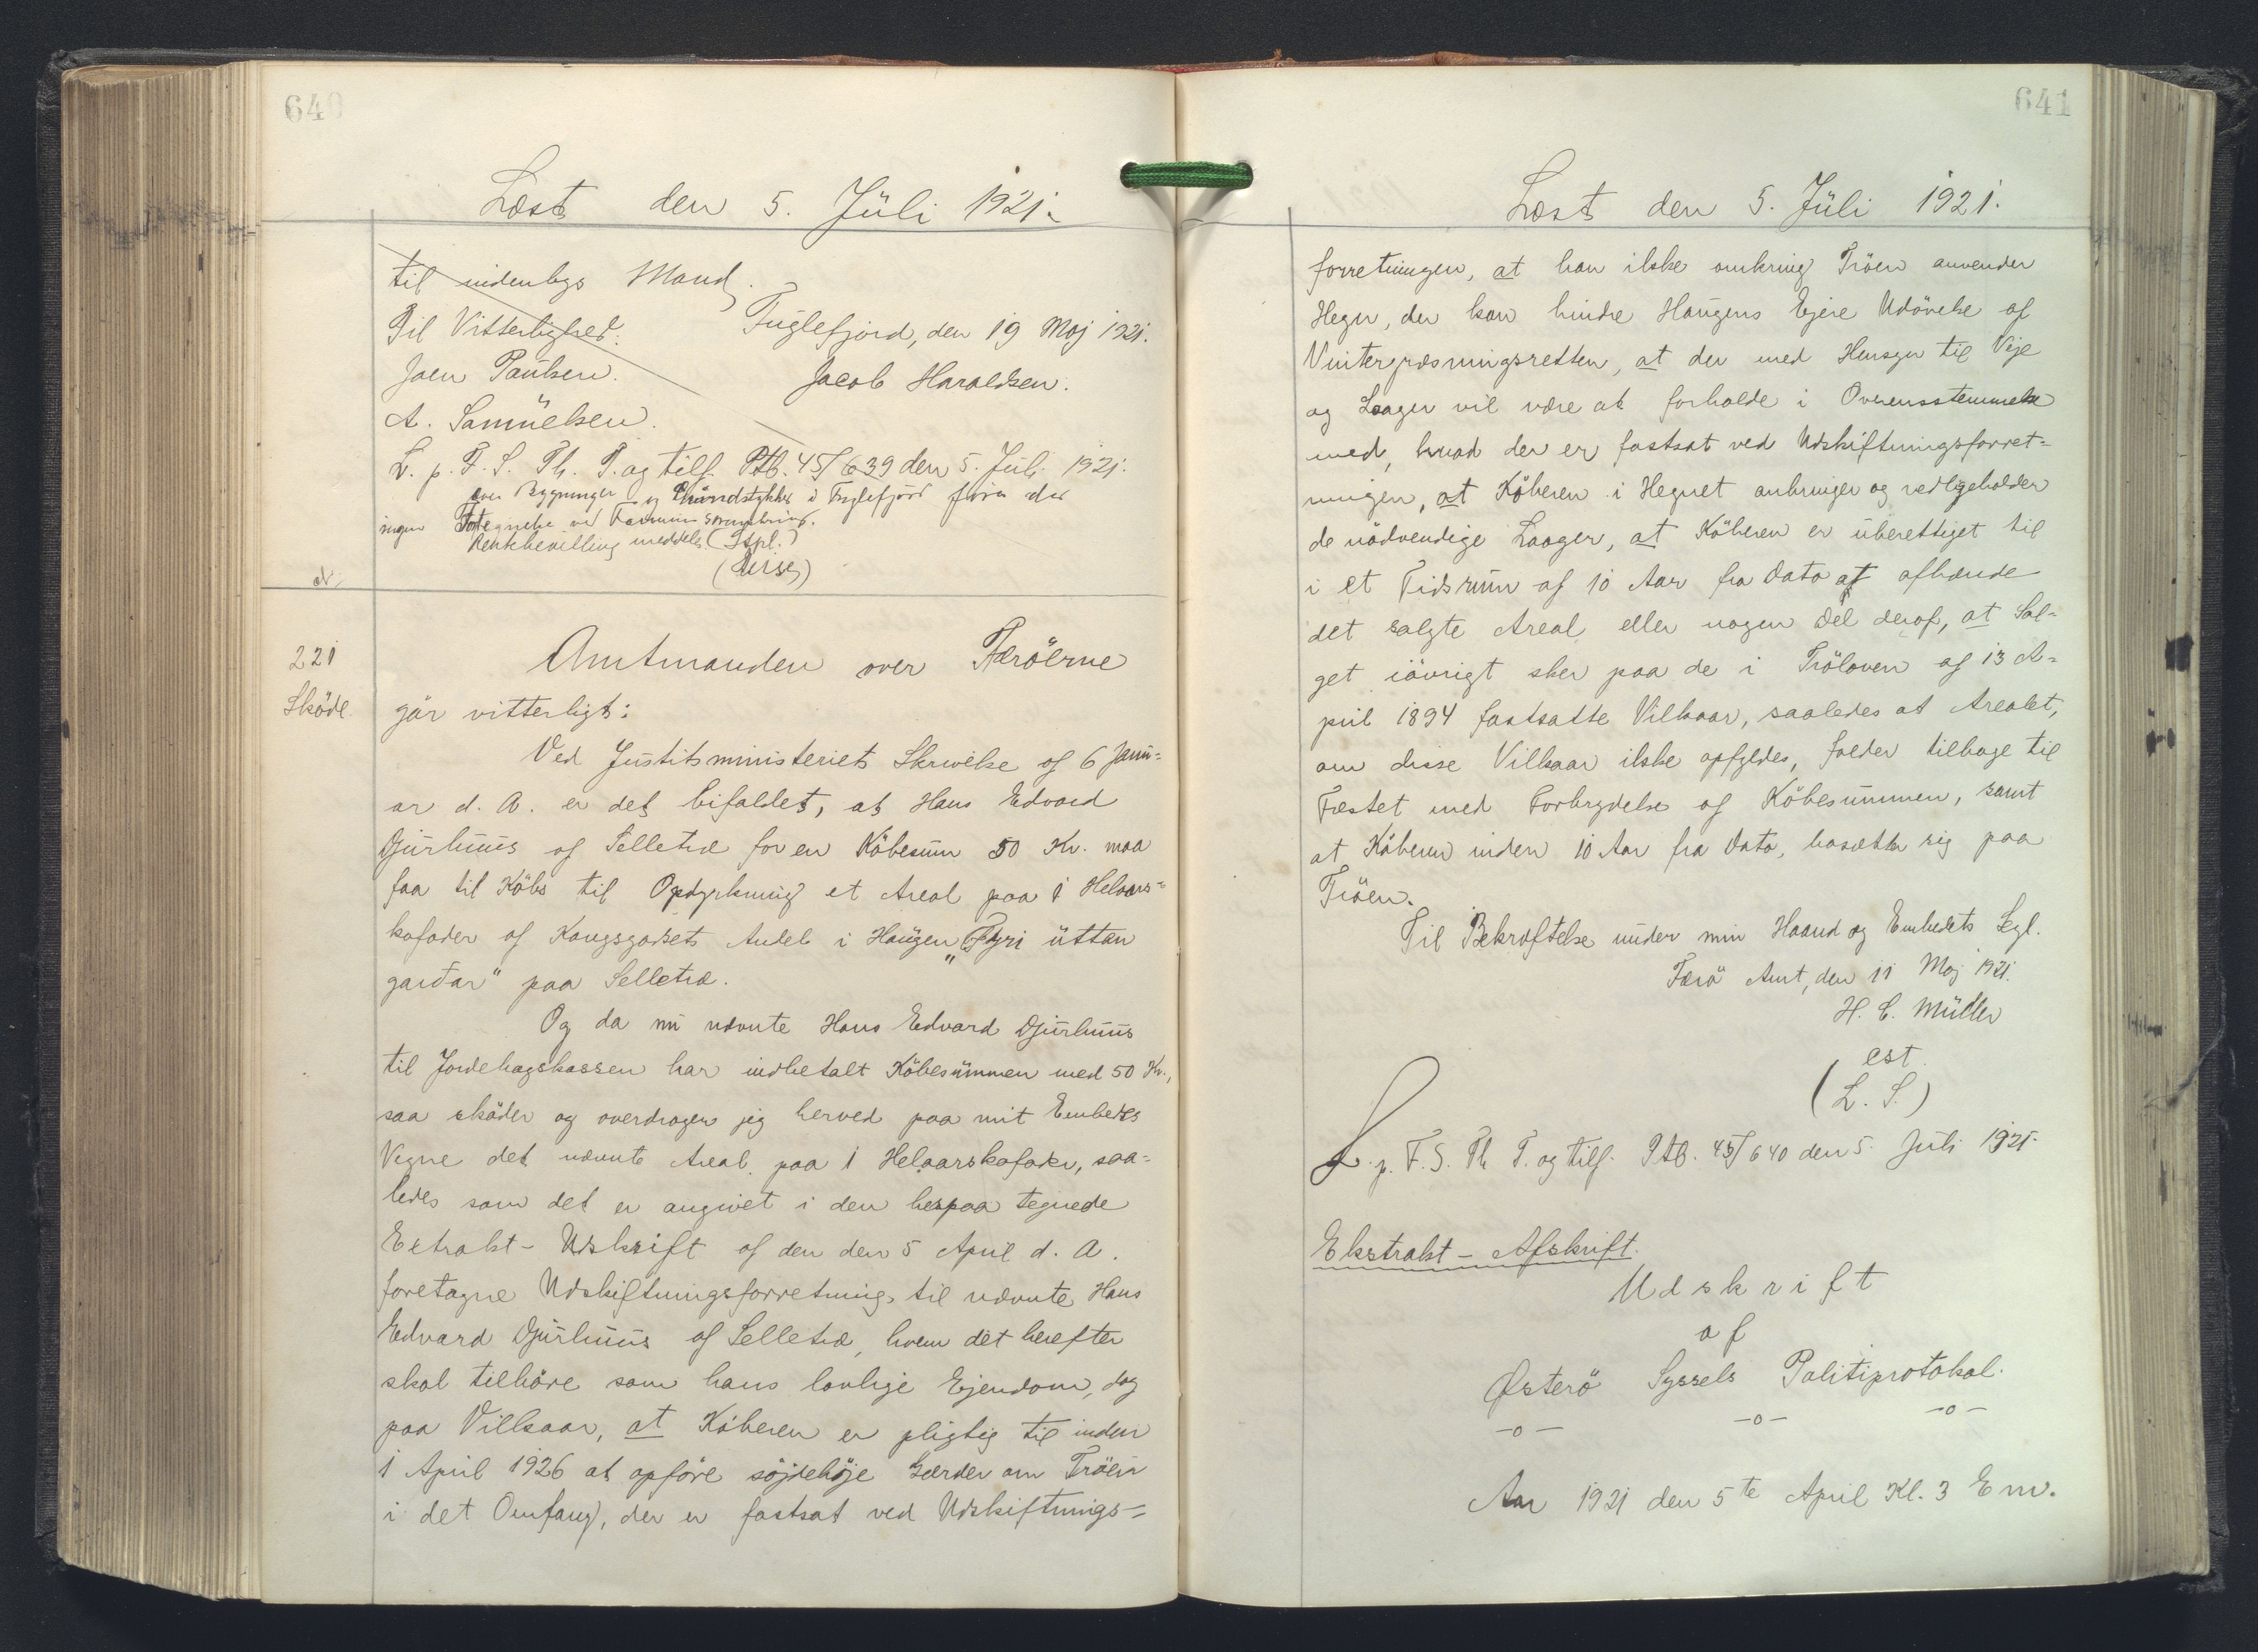 640
Læst den 5. Jüli 1921.
til indenbygs Mand.
Til Vitterlighed: Fuglefjord, den 19 Maj 1921.
Joen Paulsen. Jacob Haraldsen.
A. Samüelsen.
L. p. F. S. Th. T. og tilf. Ptb. 45/639 den 5. Juli 1921.
over Bygninger og Grundstykker i Fuglefjord findes der
ingen
Rentebevilling meddeles (Stpl.)
N.
221
Sköde
Amtmanden over Færöerne
gör vitterligt:
Ved Justitsministeriets Skrivelse af 6 Janu-
ar d. A. er det bifaldet, at Hans Edvard
Djürhüüs af Selletræ for en Köbesum 50 Kr. maa
faa til Köbs til Opdyrkning et Areal paa 1 Helaars-
kofoder af Kongsgodsets Andel i Haugen "Fyri üttan
gardar" paa Selletræ.
Og da nü nævnte Hans Edvard Djürhüüs
til Jordebogskassen har indbetalt Köbesümmen med 50 Kr.,
saa sköder og overdrager jeg herved paa mit Embedes
Vegne det nævnte Areal paa 1 Helaarskofoder, saa-
ledes som det er angivet i den herpaa tegnede
Extrakt-Udskrift af den den 5 April d. A.
foretagne Udskiftningsforretning til nævnte Hans
Edvard Djürhüüs af Selletræ, hvem det herefter
skal tilhöre som hans lovlige Ejendom, dog
paa Vilkaar, at Köberen er pligtig til inden
1 April 1926 at opföre söjdehöje Gærder om Tröen
i det Omfang, der er fastsat ved Udskiftnings-
641
Læst den 5. Jüli 1921.
forretningen, at han ikke omkring Tröen anvender
Hegn, der kan hindre Haugens Ejere Udövelse af
Vintergræsningsretten, at der med Hensyn til Veje
og Laager vil være at forholde i Overensstemmelse
med, hvad der er fastsat ved Udskiftningsforret-
ningen, at Köberen i Hegnet anbringer og vedligeholder
de nödvendige Laager, at Köberen er uberettiget til
i et Tidsrum af 10 Aar fra Dato at afhænde
det solgte Areal eller nogen Del deraf, at Sal-
get iövrigt sker paa de i Tröloven af 13 A-
pril 1894 fastsatte Vilkaar, saaledes at Arealet,
om disse Vilkaar ikke opfyldes, falder tilbage til
Fæstet med Forbrydelse af Köbesummen, samt
at Köberen inden 10 Aar fra Dato, bosætter sig paa
Tröen.
Til Bekræftelse under min Haand og Embedets Segl.
Færö Amt, den 11 Maj 1921.
H. C. Müller
est.
(L. S.)
L. p. F. S. Th T. og tilf. Ptb. 45/640 den 5. Juli 1921.
Ekstrakt-Afskrift.
Udskrift
af
Østerö Syssels Politiprotokol.
-o- -o- -o-
Aar 1921 den 5te April Kl. 3 Em.